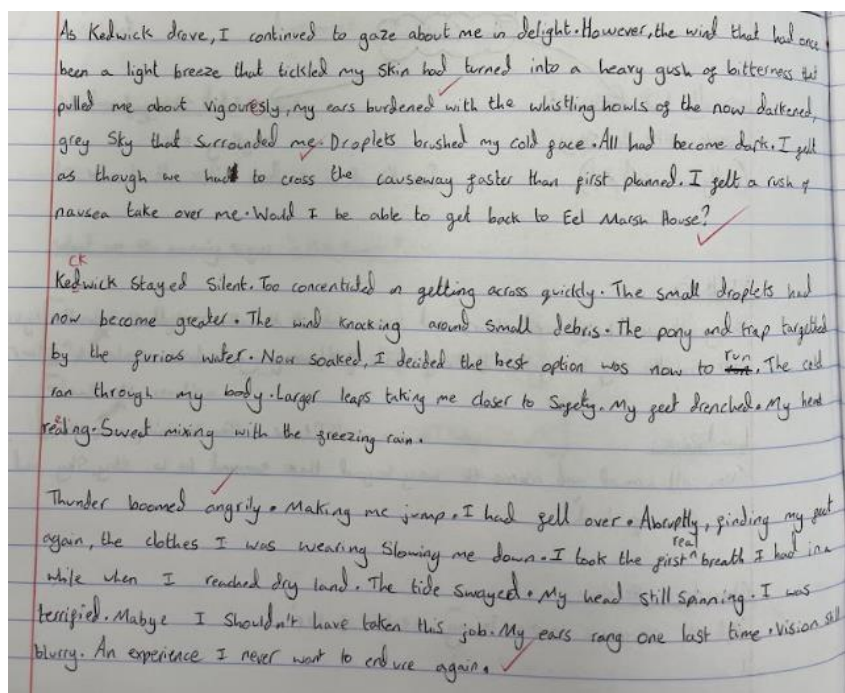 As Kedwick drove, I continued to gaze about me in delight. However, the wind that had once
been a light breeze that tickled my skin had turned into a heavy gush of bitterness that
pulled me about vigouresly, my ears burdened with the whistling howls of the now darkened,
grey sky that surrounded me. Droplets brushed my cold face. All had become dark. I felt
as though we had to cross the causeway faster than first planned. I felt a rush of
nausea take over me. Would I be able to get back to Eel Marsh House?
CK
Kedwick stayed silent. Too concentrated on getting across quickly. The small droplets had
now become greater. The wind knocking around small debris. The pony and trap targetted
by the furious water. Now soaked, I decided the best option was now to run. The cold
ran through my body. Larger leaps taking me closer to safety. My feet drenched. My head
Sweat mixing with the freezing rain.
Thunder boomed angrily. Making me jump. I had fell over. Abruptly, finding my feet
again, the clothes I was wearing slowing me down. I took the first real breath I had in a
while when I reached dry land. The tide swayed. My head still spinning. I was
terrified. Mabye I shouldn't have taken this job. My ears rang one last time. Vision still
blurry. An experience I never want to endure again.